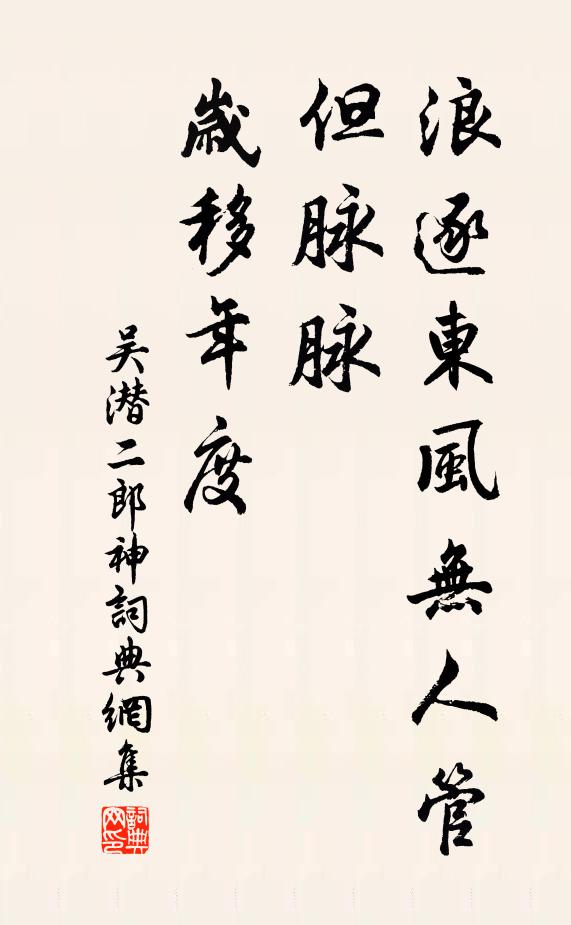 浪逐東風無人管
但脉脉
歲移年度
吴潛二郎神詞典網集
詞典網印